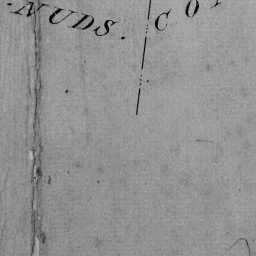 NUDS. CO